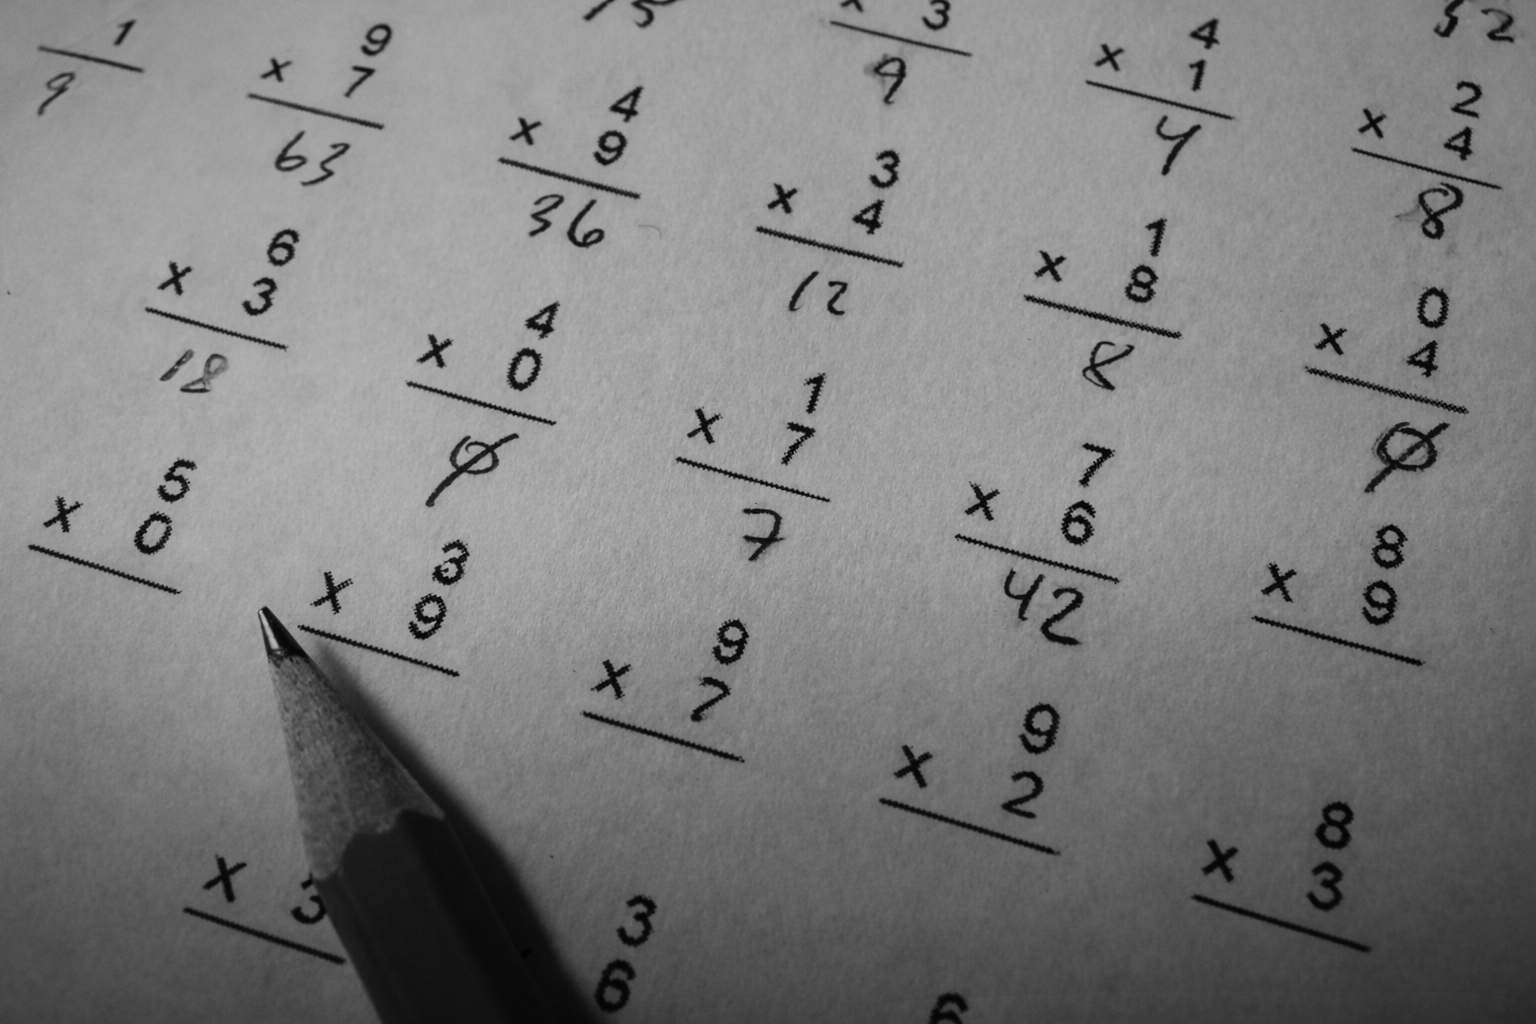 1
9
9
x 7
63
4
x 9
36
3
9
4
x 1
4
52
2
x 4
8
6
x 3
18
4
x 0
0
3
x 4
12
1
x 8
8
0
x 4
0
5
x 0
3
x 9
1
x 7
7
7
x 6
42
8
x 9
9
x 7
9
x 2
8
x 3
x 3
3
6
6